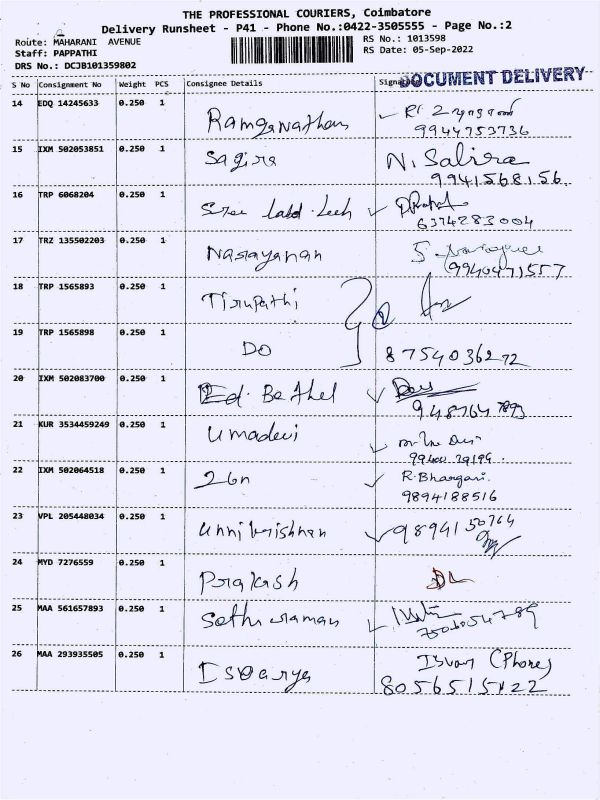 THE PROFESSIONAL COURIERS, Coimbatore
Delivery Runsheet - P41 - Phone No.:0422-3505555 - Page No.:2
Route: MAHARANI AVENUE RS No.: 1013598
Staff: PAPPATHI RS Date: 05-Sep-2022
DRS No.: DCJB101359802
DOCUMENT DELIVERY
S No Consignment No Weight PCS Consignee Details
14 EDQ 14245633 0.250 1 Ramganathan
9944753736
15 IXM 502053851 0.250 1 Sagira N. Sabira
9941568156
16 TRP 6068204 0.250 1
6374283004
17 TRZ 135502203 0.250 1 Narayanan
9940471557
18 TRP 1565893 0.250 1 Tirupathi
19 TRP 1565898 0.250 1 DO 8754036272
20 IXM 502083700 0.250 1 Ed. Bethel
21 KUR 3534459249 0.250 1 Umadevi
22 IXM 502064518 0.250 1 R. Bhargavi
9894188516
23 VPL 205448034 0.250 1 Unnikrishnan 9894150764
24 MYD 7276559 0.250 1 Prakash
25 MAA 561657893 0.250 1 Sethuraman
26 MAA 293935505 0.250 1 Iswarya (Phone)
8056515422